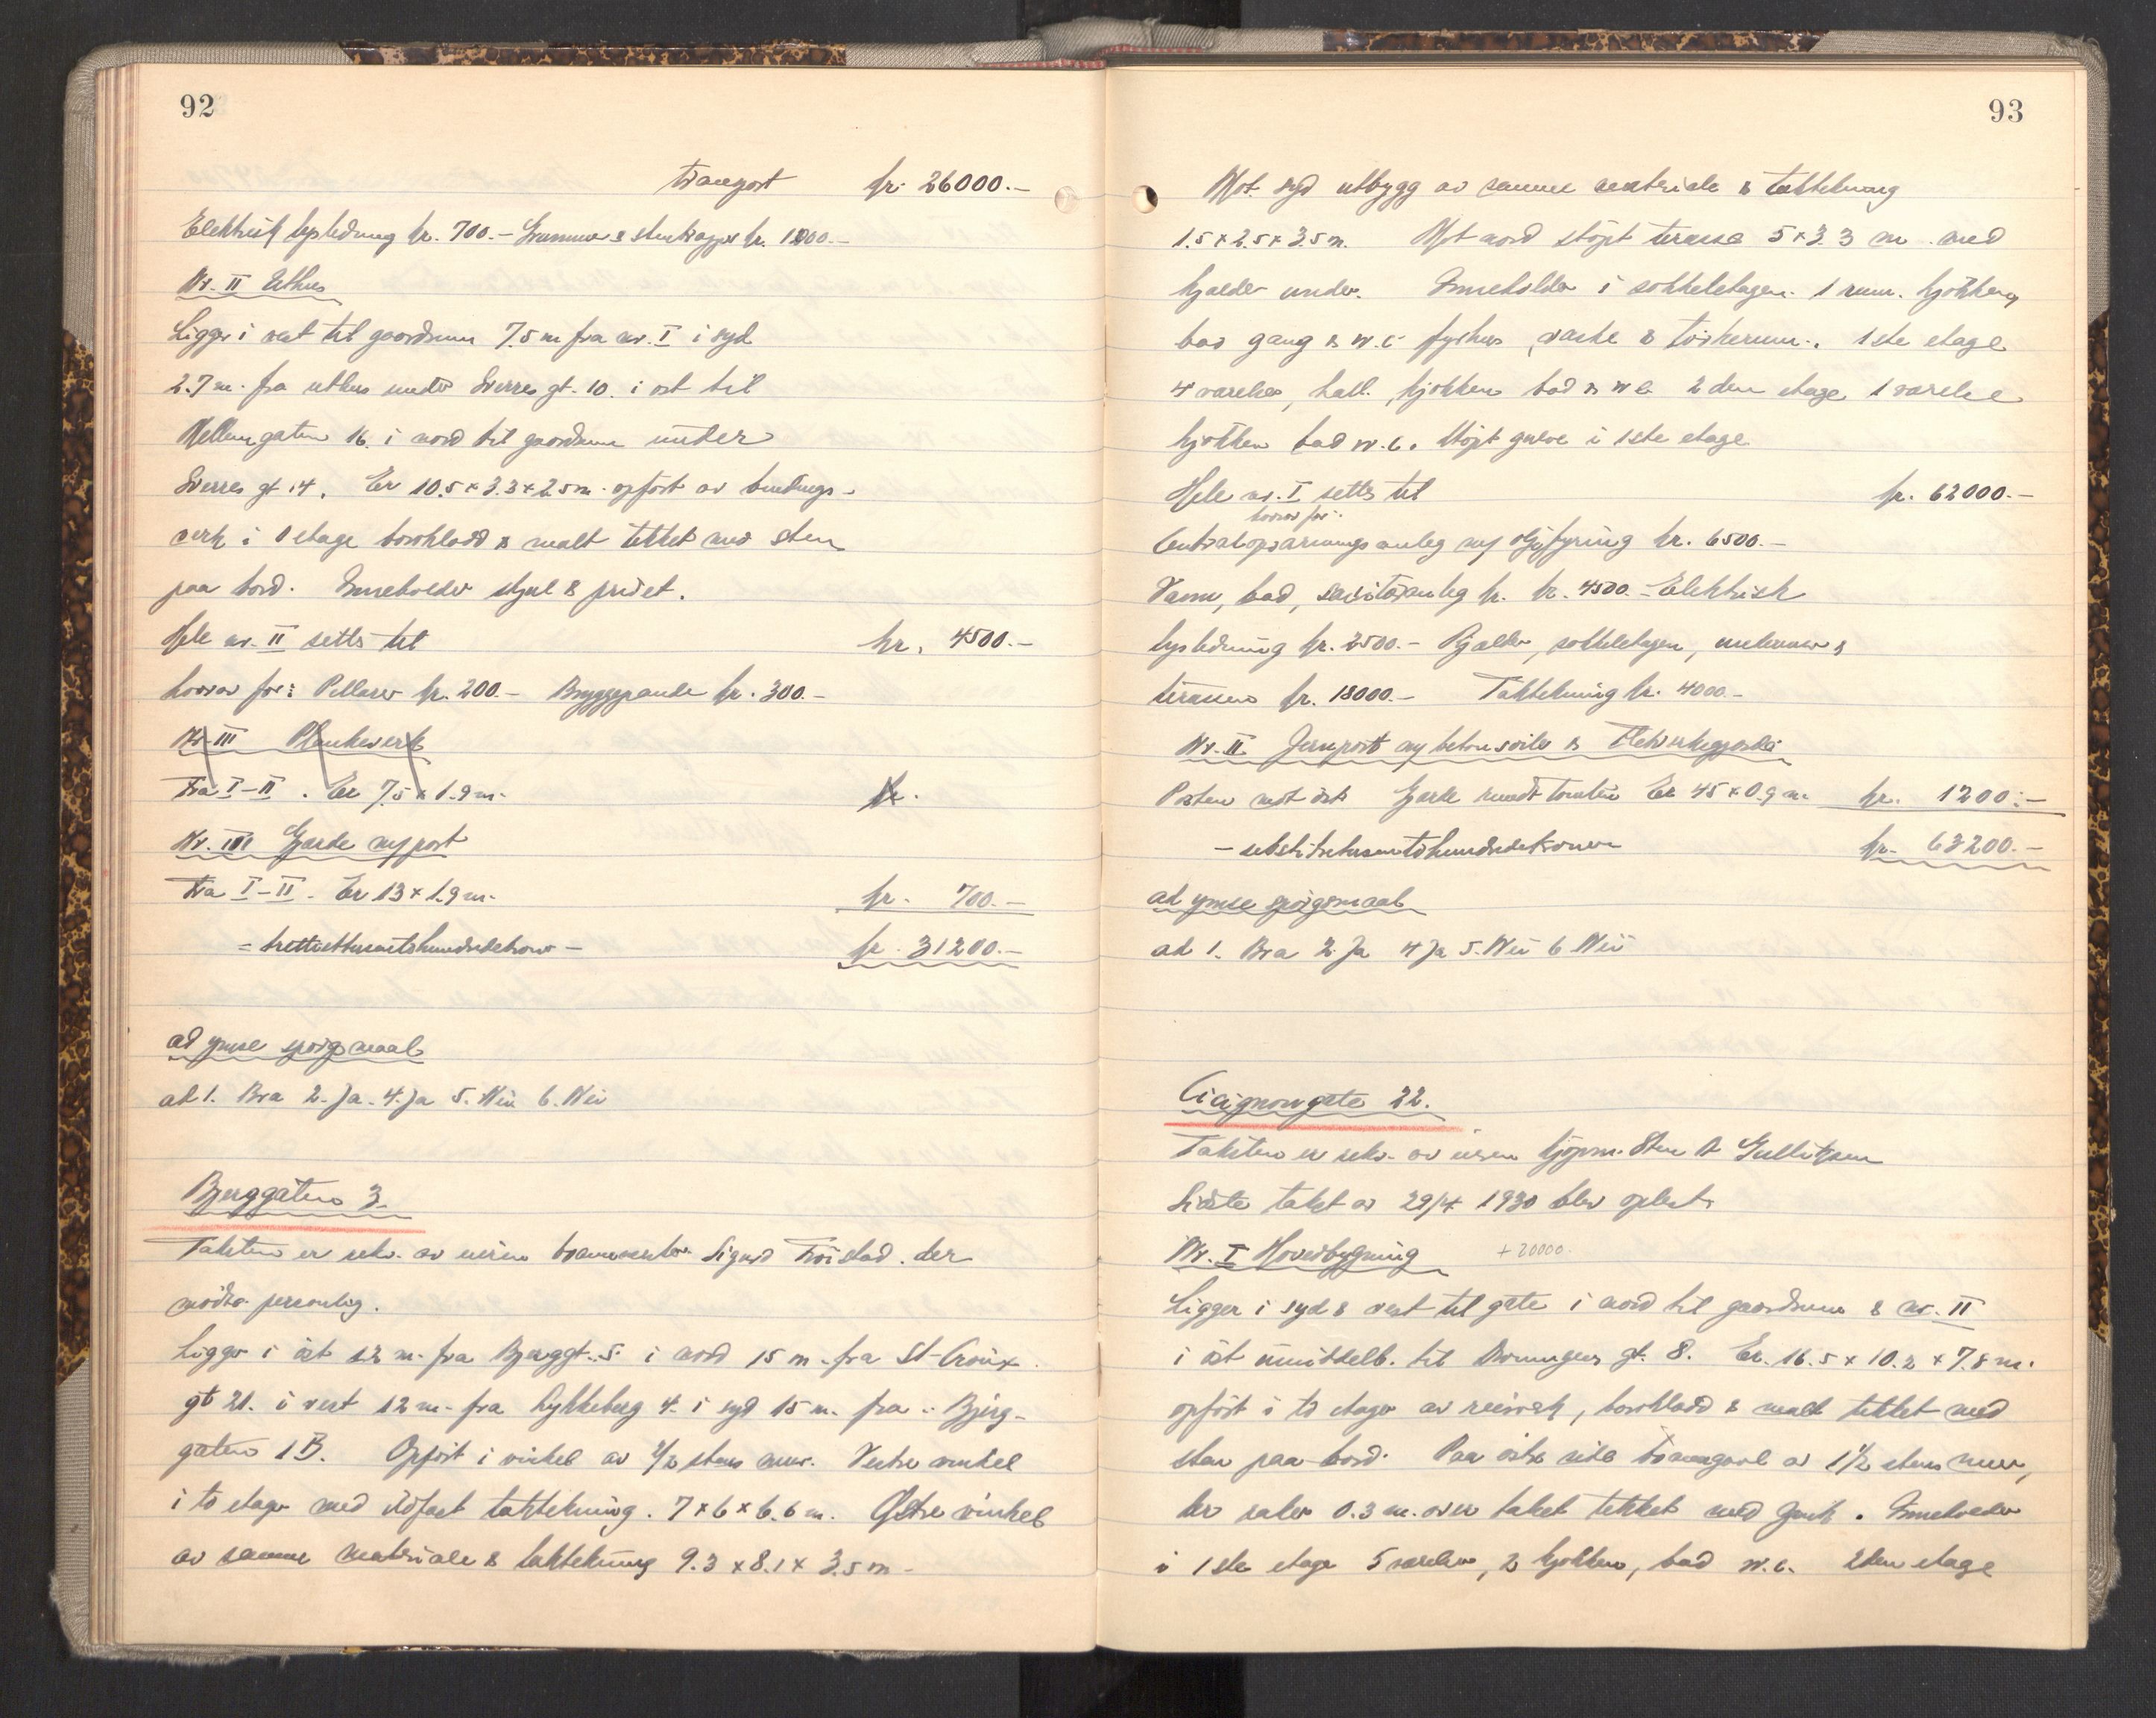 92
transport kr. 26000.-
Elektrisk lysledning kr. 700.- Grunnmur & stentrapper kr. 1000.-
Nr. II Uthus
Ligger i vest til gaardsrum 7.5 m fra nr. I i syd
2.7 m. fra uthus under Sverres gt. 10. i øst til
Mellemgaten 16. i nord til gaardsrum under
Sverres gt 14. Er 10.5 x 3.3 x 2.5 m. opført av bindings-
verk i 1 etage bordkladd & malt tekket med sten
paa bord. Inneholder skjul & privet.
Hele nr. II settes til kr. 4500.-
hvorav for: Pillarer kr. 200.- Bryggepande kr. 300.-
Nr. III Plankeverk
Fra I-II. Er 7.5 x 1.9 m. kr.
Nr. III Gjærde m/port
Fra I-II. Er 13 x 1.9 m. kr. 700.-
= trettiettusentohundredekroner - kr. 31200.-
ad ymse spørgsmaal
ad 1. Bra 2. Ja. 4. Ja 5. Nei 6. Nei
Bjerggaten 3.
Taksten er rekv. av eieren Sigurd der
møtte personlig.
Ligger i øst 12 m. fra Bjerggt. 5. i nord 15 m. fra St. Croix
gt 21. i vest 12 m. fra Lykkeberg 4. i syd 15 m. fra Bjerg-
gaten 1B. Opført i vinkel av 1/2 stens mur. Vestre vinkel
i to etager med ildfast taktekning. 7 x 6 x 6.6 m. Østre vinkel
av samme materiale & taktekning 9.3 x 8.1 x 3.5 m.
93
Mot syd utbygg av samme materiale & taktekning
1.5 x 2.5 x 3.5 m. Mot nord støpt terasse 5 x 3.3 m. med
kjælder under. Inneholder i sokkeletagen 1 rum. kjøkken,
bad gang & w.c. fyrhus, vaske & tørkerum. 1ste etage
4 værelser, hall, kjøkken bad & w.c. 2den etage 1 værelse
kjøkken bad w.c. Støpt gulv i 1ste etage
Hele nr. I settes til kr. 62000.-
hvorav for:
Centralopvarmingsanleg m/oljefyring kr. 6500.-
Vann, bad, sanitæranleg kr. kr. 4500.- Elektrisk
lysledning kr. 2500.- Kjælder, sokkeletagen, &
terassen kr. 18000.- Taktekning kr. 4000.-
Nr. II Jernport m/betonsøiler & Fletverksgjærde
Porten mot øst Gjærde rundt tomten Er 45 x 0.9 m. kr. 1200.-
- sekstitretusentohundredekroner kr. 63200.-
ad ymse spørgsmaal
ad 1. Bra 2. Ja 4 Ja 5. Nei 6 Nei
Cicignonsgate 22.
Taksten er rekv. av eieren kjøpm. Sten A Gullitzsen
Sidste takst av 29/4 1930 blev oplest
Nr. I Hovedbygning + 20000.
Ligger i syd & vest til gate i nord til gaardsrum & nr. II
i øst umiddelb. til Dronningens gt. 8. Er. 16.5 x 10.2 x 7.8 m.
opført i to etager av reisverk, bordkladd & malt tekket med
sten paa bord. Paa østre side branngavl av 1 1/2 stens mur,
der rager 0.3 m. over taket tekket med zink. Inneholder
i 1ste etage 5 værelser, 2 kjøkken, bad w.c. 2den etage